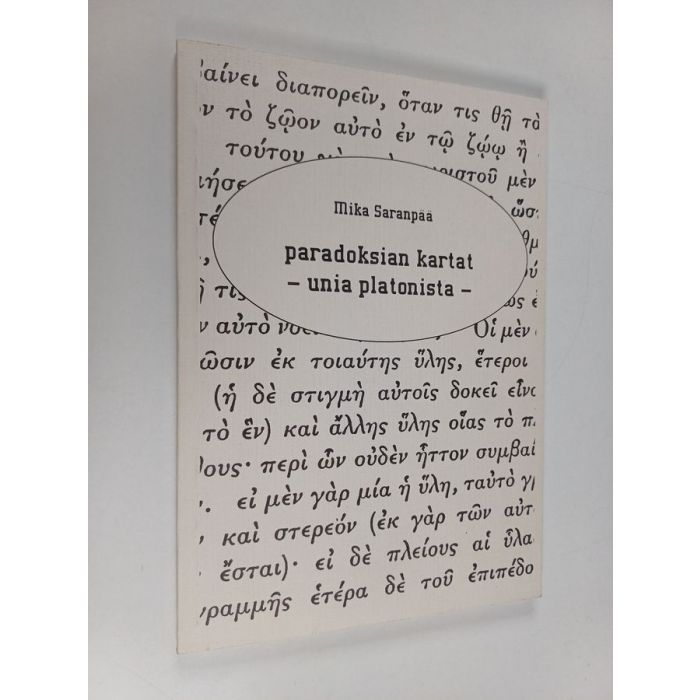 αίνει διαπορεῖν, ὅταν τις θῇ τὰ
ν τὸ ζῷον αὐτὸ ἐν τῷ ζῴῳ ἢ
τούτου μὲν
Mika Saranpää
paradoksian kartat
– unia platonista –
τις
ν αὐτὸ Οἱ μὲν
ῶσιν ἐκ τοιαύτης ὕλης, ἕτεροι
(ἡ δὲ στιγμὴ αὐτοῖς δοκεῖ εἶνα
τὸ ἓν) καὶ ἄλλης ὕλης οἵας τὸ π
θους· περὶ ὧν οὐδὲν ἧττον συμβαί
. εἰ μὲν γὰρ μία ἡ ὕλη, ταὐτὸ γρ
καὶ στερεόν (ἐκ γὰρ τῶν αὐτ
ἔσται)· εἰ δὲ πλείους αἱ ὗλα
ραμμῆς ἑτέρα δὲ τοῦ ἐπιπέδο